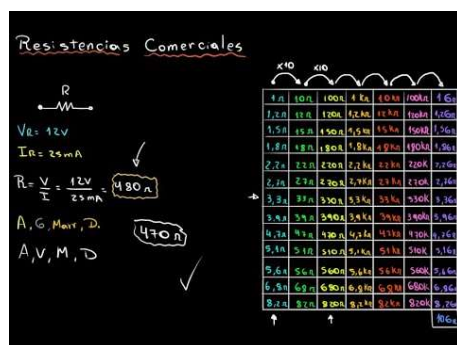 Resistencias Comerciales
R
VR = 12V
IR = 25mA
R = V/I = 12V/25mA = 480Ω
A, G, Marr, D.
470Ω
A, V, M, D
x10 x10
1Ω 10Ω 100Ω 1KΩ 10KΩ 100KΩ
1,2Ω 12Ω 120Ω 1,2KΩ 12KΩ 120KΩ
1,5Ω 15Ω 150Ω 1,5KΩ 15KΩ 150KΩ
1,8Ω 18Ω 180Ω 1,8KΩ 18KΩ 180KΩ
2,2Ω 22Ω 220Ω 2,2KΩ 22KΩ 220K
2,7Ω 27Ω 270Ω 2,7KΩ 27KΩ 270K
3,3Ω 33Ω 330Ω 3,3KΩ 33KΩ 330K
3,9Ω 39Ω 390Ω 3,9KΩ 39KΩ 390K
4,7Ω 47Ω 470Ω 4,7KΩ 47KΩ 470K
5,1Ω 51Ω 510Ω 5,1KΩ 51KΩ 510K
5,6Ω 56Ω 560Ω 5,6KΩ 56KΩ 560K
6,8Ω 68Ω 680Ω 6,8KΩ 68KΩ 680K
8,2Ω 82Ω 820Ω 8,2KΩ 82KΩ 820K